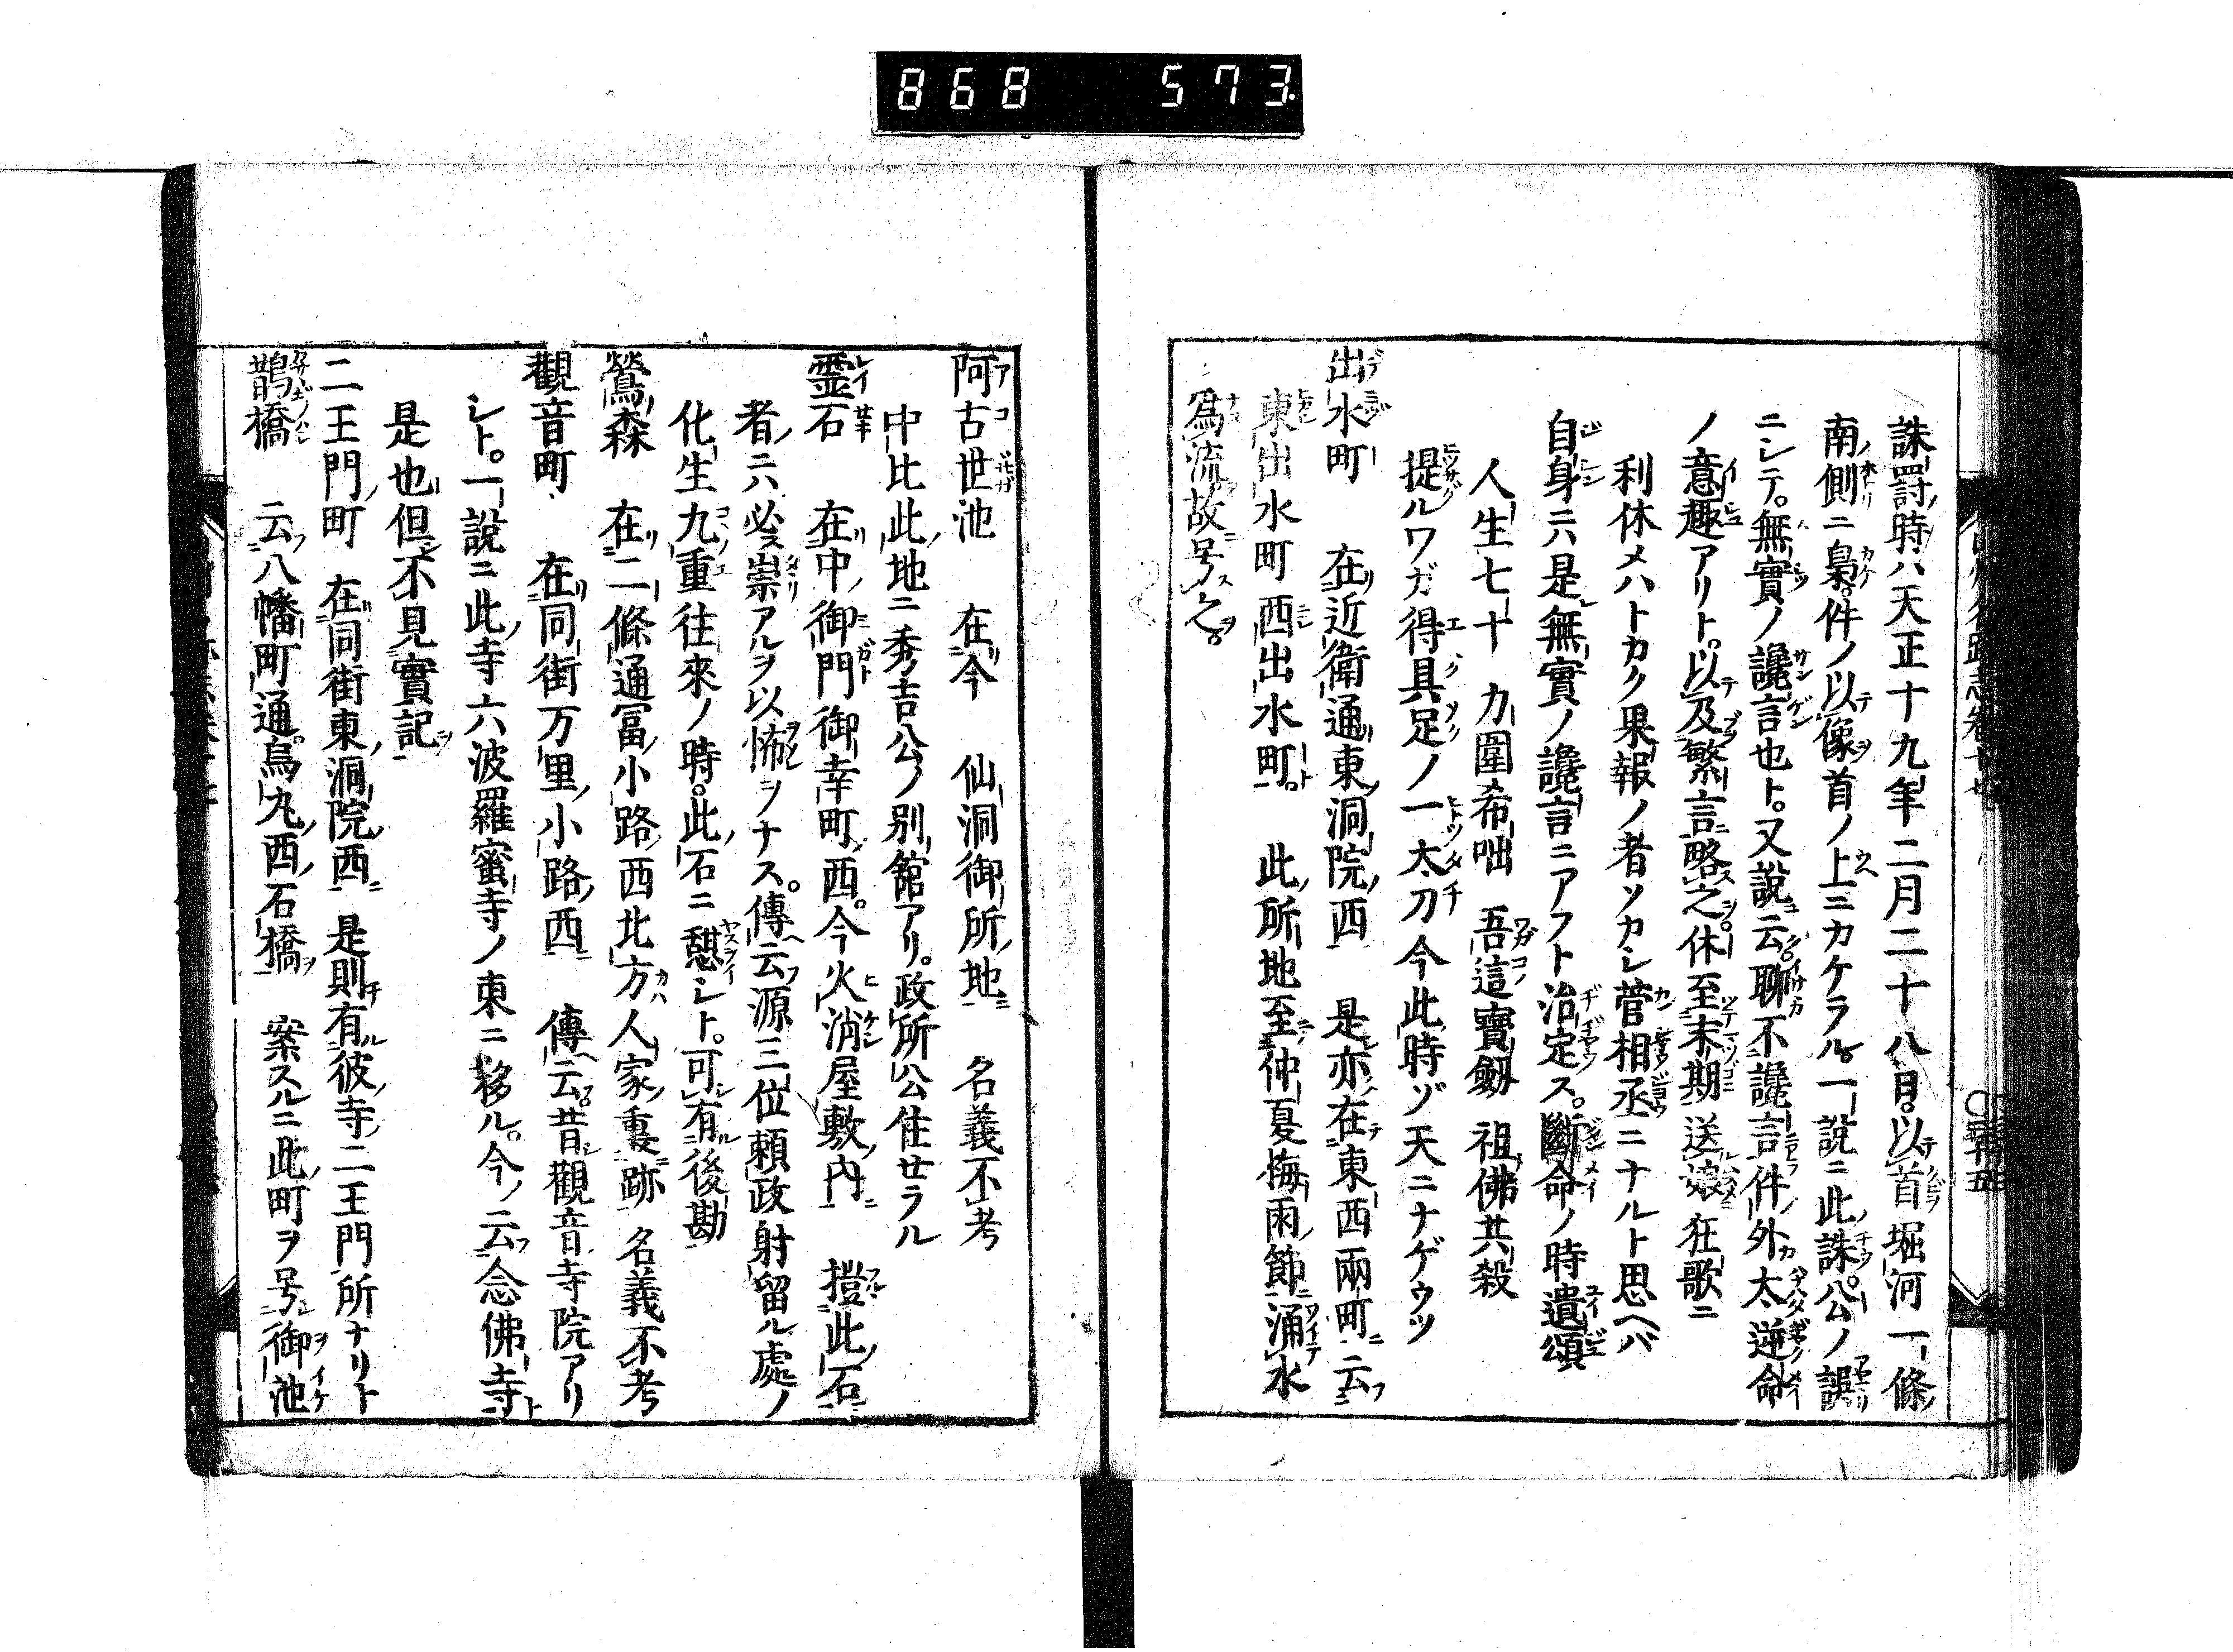 868 573
誅罰ノ時ハ天正十九年二月二十八日。以首堀河一條ノ
南ノ側ニ梟。件ノ以像首ノ上ニカケラル。一說ニ此誅公ノ誤
ニシテ。無實ノ讒言也ト。又說云。聊不讒言件外太逆命
ノ意趣アリト。以及繁言略之。休至末期送嬢狂歌ニ
利休メハトカク果報ノ者ソカシ菅相丞ニナルト思ヘバ
自身ニハ是無實ノ讒言ニアフト治定ス。斷命ノ時遺頌
人生七十 力圍希咄 吾這寶劔 祖佛共殺
提ルワガ得具足ノ一太刀今此時ゾ天ニナゲウツ
出水町 在近衛通東洞院西 是亦在東西兩町云
東出水町西出水町。 此所地至仲夏梅雨節涌水
爲流故号之。
阿古世池 在今 仙洞御所地 名義不考
中比此地ニ秀吉公ノ別舘アリ。政所公住セラル
霊石 在中御門御幸町西。今火消屋敷内 揩此石
者ニハ必崇アルヲ以怖ヲナス。傳云源三位頼政射留ル處ノ
化生九重往來ノ時。此石ニ憩シト。可有後勘
鶯森 在二條通冨小路西北方人家裏跡 名義不考
觀音町 在同街万里小路西 傳云昔觀音寺院アリ
シト。一說ニ此寺六波羅蜜寺ノ東ニ移ル。今云念佛寺
是也但不見實記
二王門町 在同街東洞院西 是則有彼寺二王門所ナリト
鵲橋 云八幡町通烏丸西石橋 案スルニ此町ヲ号御池